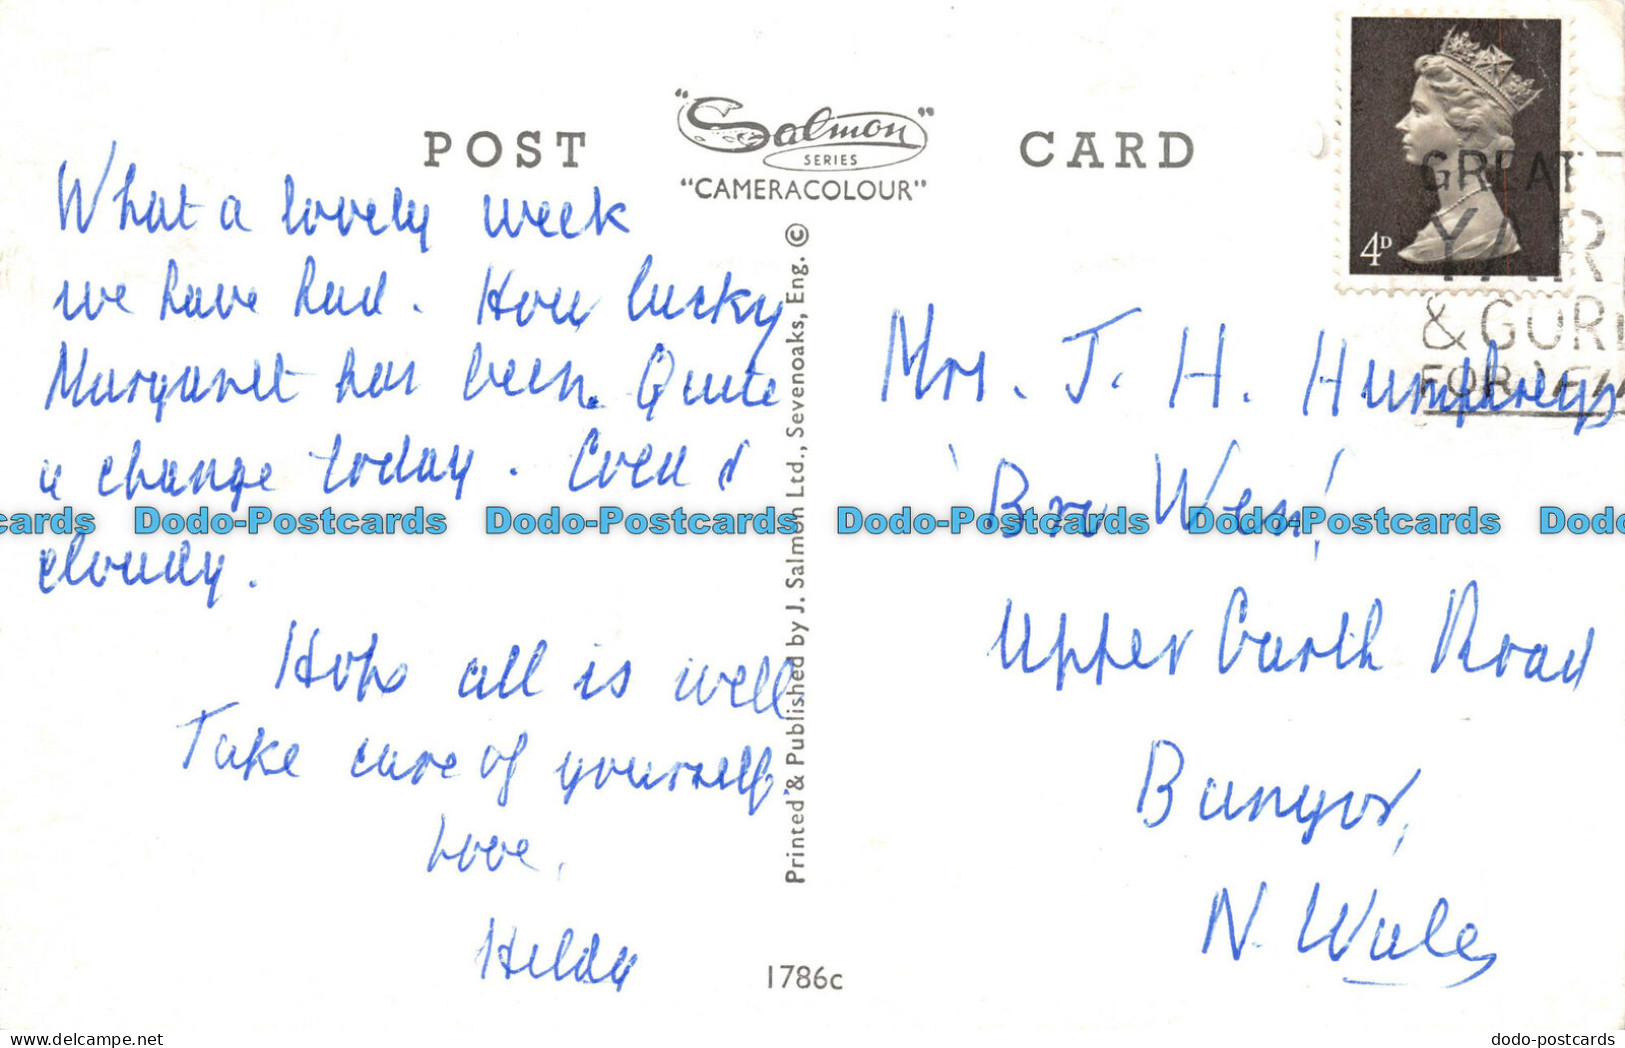 POST CARD
"Salmon"
SERIES
"CAMERACOLOUR"
What a lovely week
we have had. How lucky
Margaret has been. Quite
a change today. Cold &
cloudy.
Hope all is well
Take care of yourself.
Love,
Hilda
Printed & Published by J. Salmon Ltd., Sevenoaks, Eng. ©
1786c
4D
GREAT
YAR
& GORL
FOR
Mrs. J. H. Humphreys
'Bro Wen'
Upper Garth Road
Bangor,
N. Wales
cards Dodo-Postcards Dodo-Postcards Dodo-Postcards Dodo-Postcards Dodo
www.delcampe.net
dodo-postcards